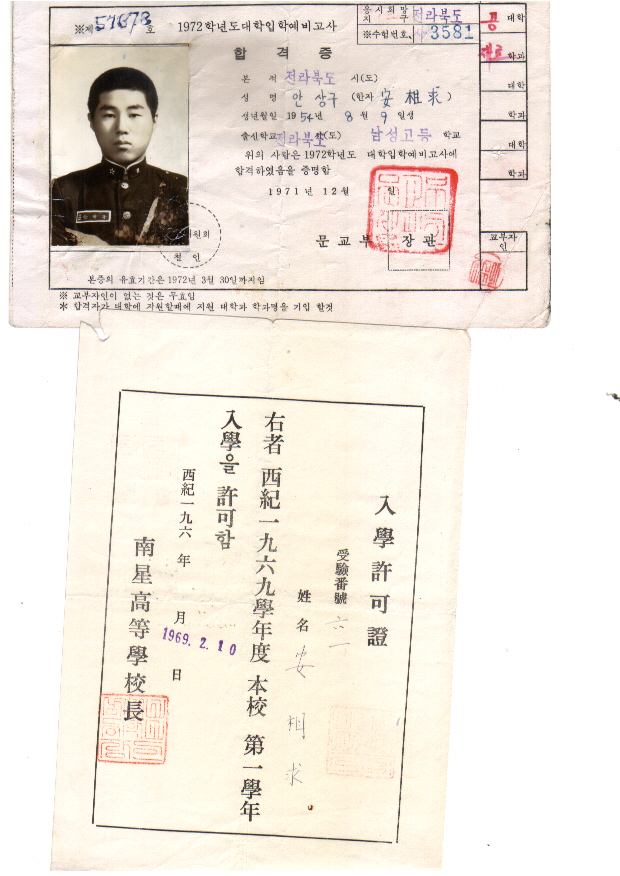 ※제57673호
1972학년도대학입학예비고사
응시희망지구 전라북도
※수험번호 3581
합격증
본적 전라북도 시(도)
성명 안상구 (한자 安相求)
생년월일 1954년 8월 9일생
출신학교 전라북도 (도) 남성고등 학교
위의 사람은 1972학년도 대학입학예비고사에
합격하였음을 증명함
1971년 12월 일
문교부장관
위원회
철인
본증의 유효기간은 1972년 3월 30일까지임
※ 교부자인이 없는 것은 무효임
※ 합격자가 대학에 지원할때에 지원 대학과 학과명을 기입 할것
공 대학
학과
대학
학과
대학
학과
교부자인
入學許可證
受驗番號
姓名 安相求
右者 西紀一九六九學年度 本校 第一學年
入學을 許可함
西紀一九六 年 月 日
1969. 2. 10
南星高等學校長